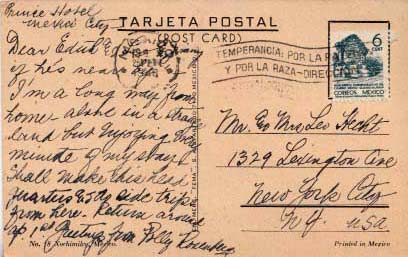 TARJETA POSTAL
(POST CARD)
Prince Hotel
Mexico City
Dear Edith
if he's near
I'm a long way from
home - alone in a strange
land but enjoying every
minute of my stay
Shall make this head
quarters & do side trips
from here. Return around
1st. Greetings from Polly
No. 18 Xochimilco, Mexico.
TEMPERANCIA: POR LA PATRIA
Y POR LA RAZA-DIRECCION
6
CORREOS MEXICO
Mr. & Mrs Leo Hecht
1329 Lexington Ave
New York City
N.Y. USA
Printed in Mexico